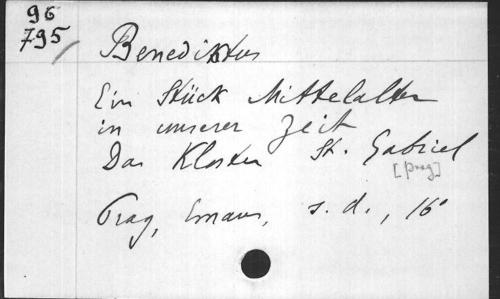 96
795
Benediktus
Ein Stück Mittelalter
in unserer Zeit
Das Kloster St. Gabriel
[Prag]
Prag, Emaus, s. d., 16°